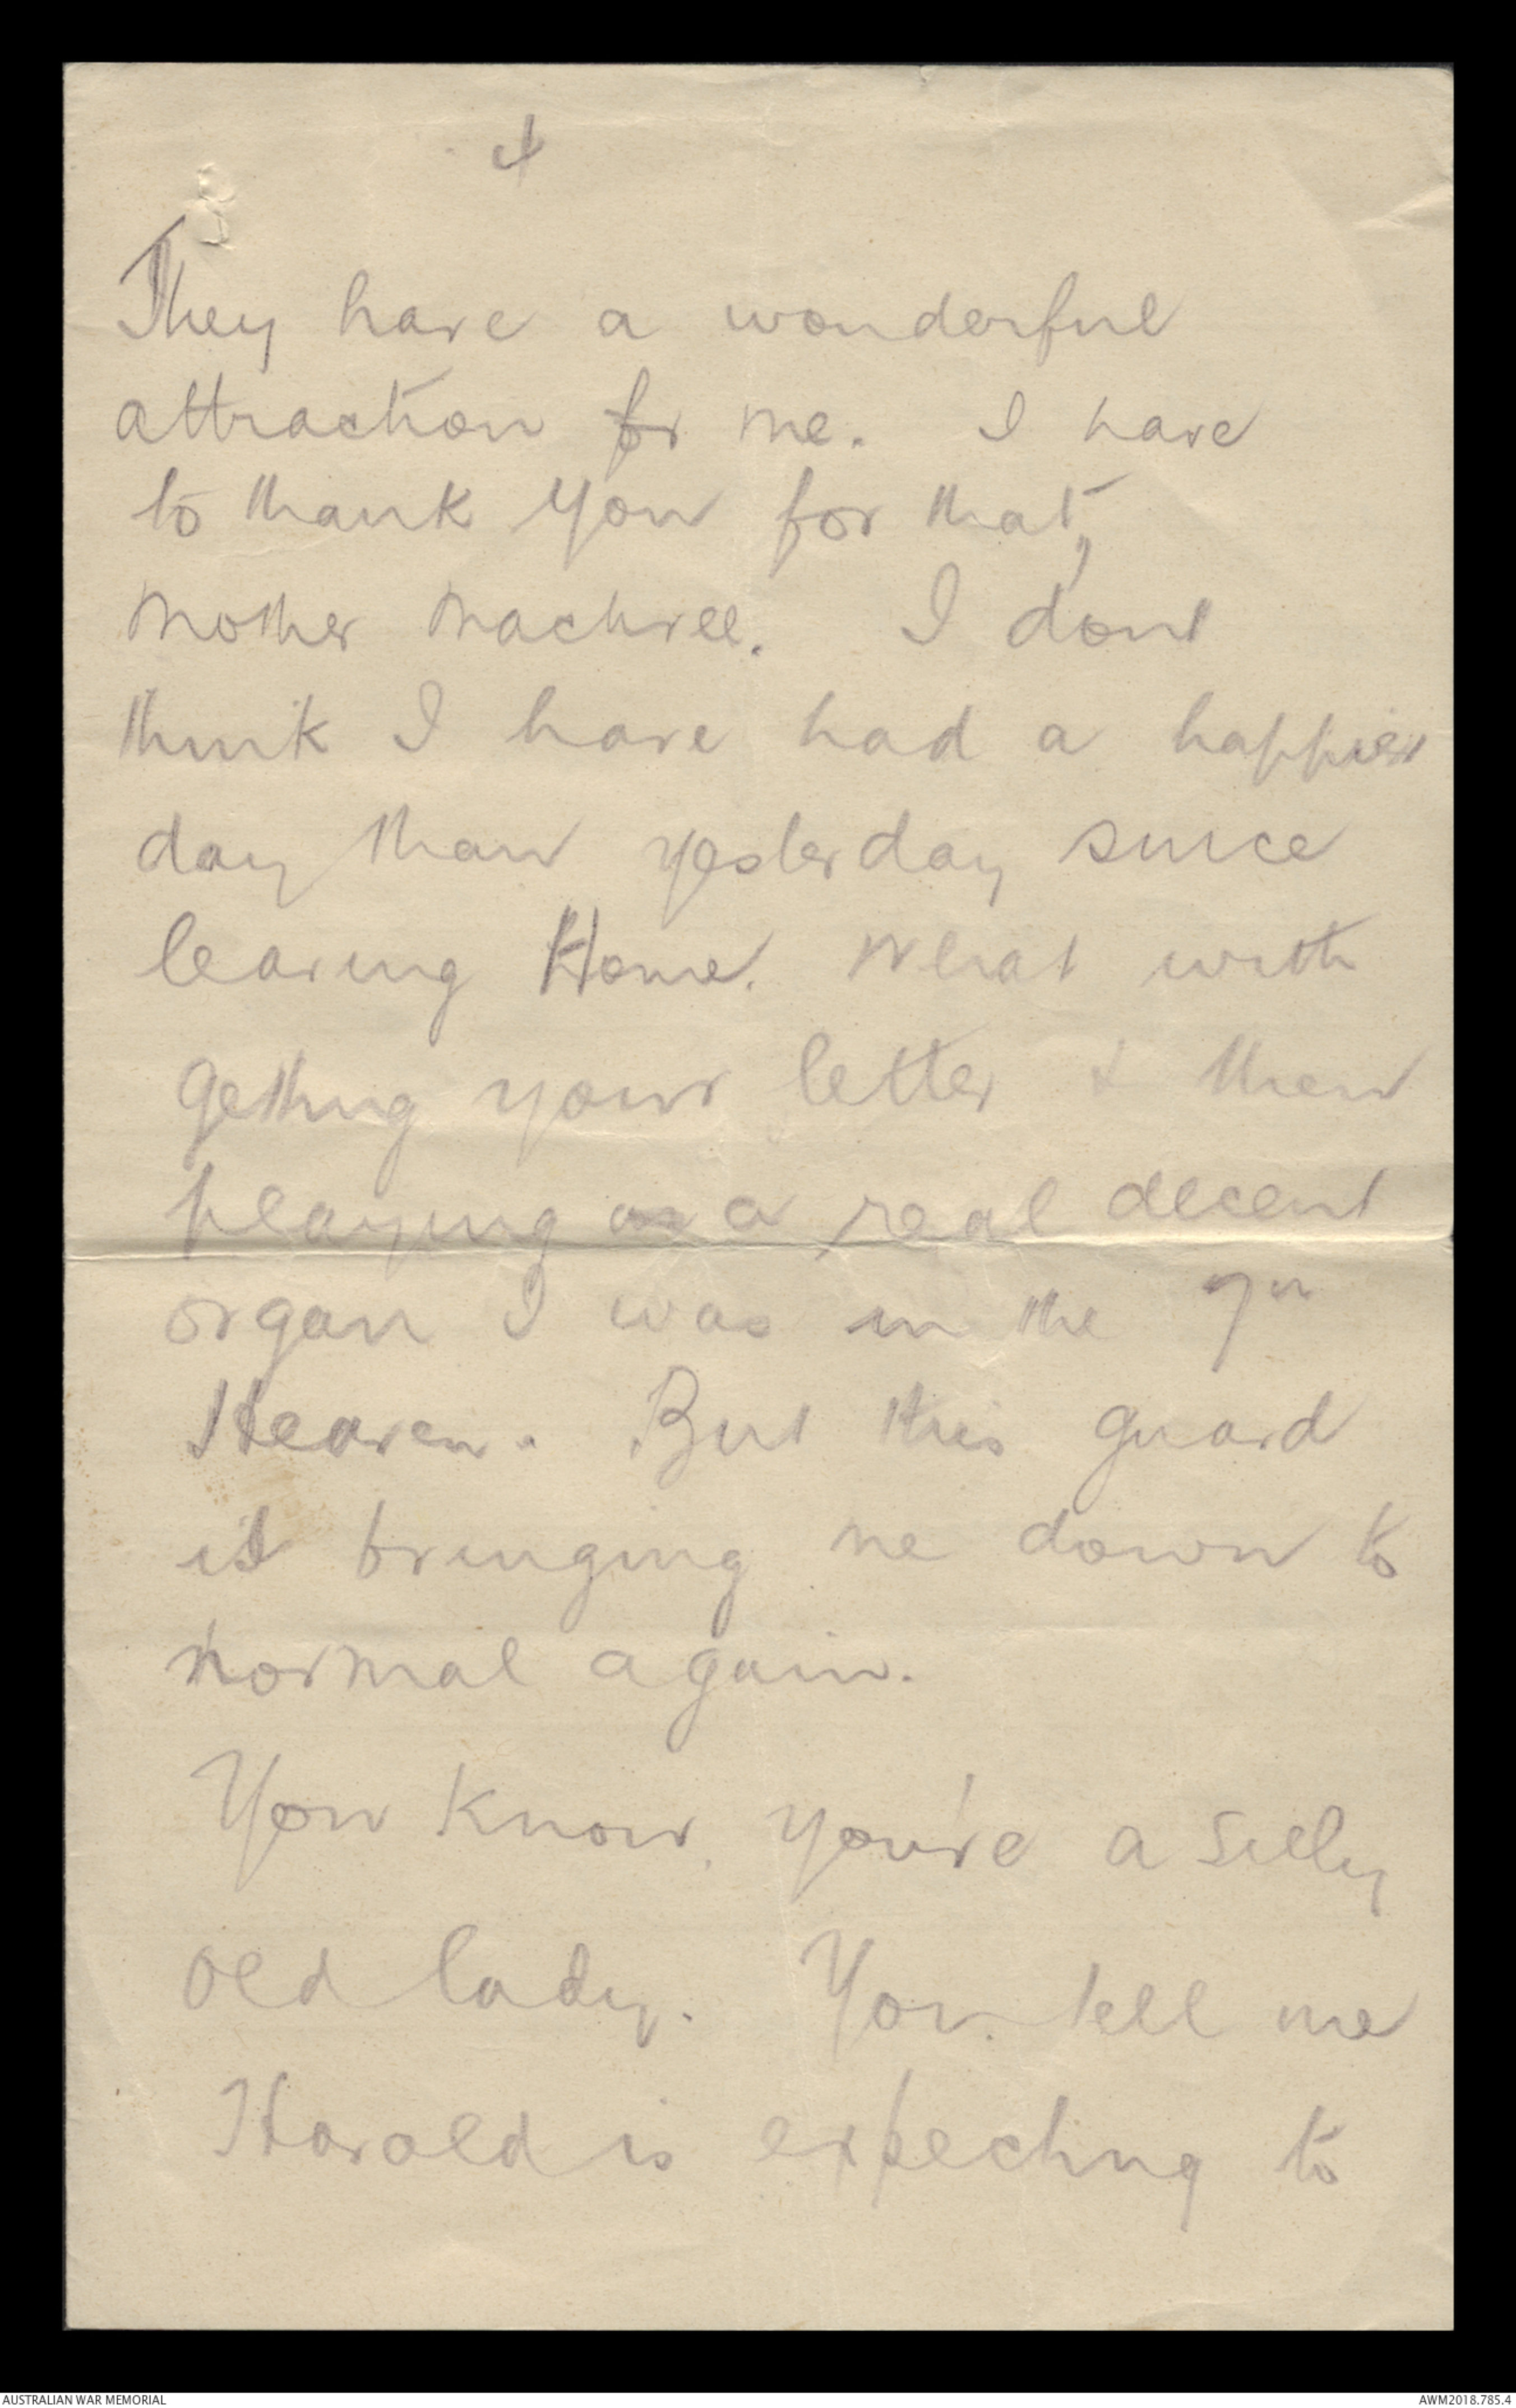 4
They have a wonderful
attraction for me. I have
to thank you for that,
Mother Machree. I dont
think I have had a happier
day than yesterday since
leaving Home. What with
getting your letter & then
playing on a real decent
organ I was in the 7th
Heaven. But this guard
is bringing me down to
normal again.
You know, you're a silly
old lady. You tell me
Harold is expecting to
AUSTRALIAN WAR MEMORIAL
AWM2018.785.4